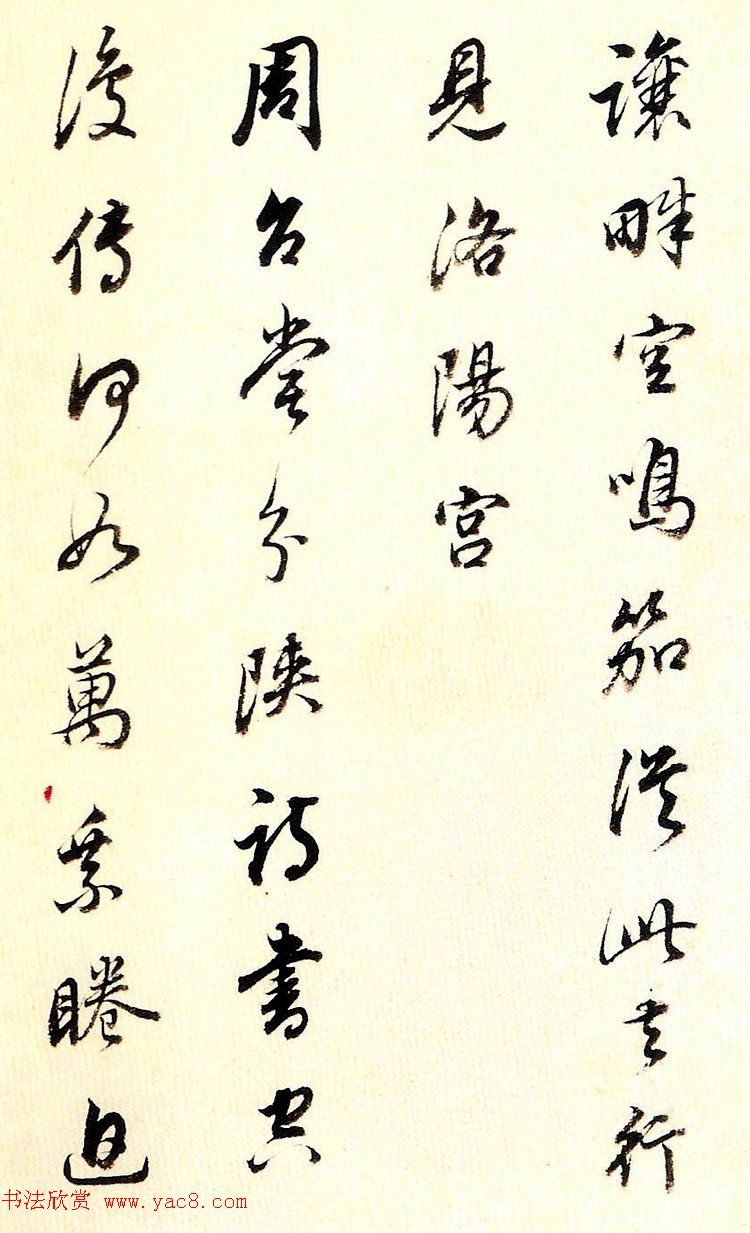 讓畔空鳴笳從此去行
見洛陽宮
周召嘗分陝詩書空
復傳何如萬乘睠追
书法欣赏 www.yac8.com